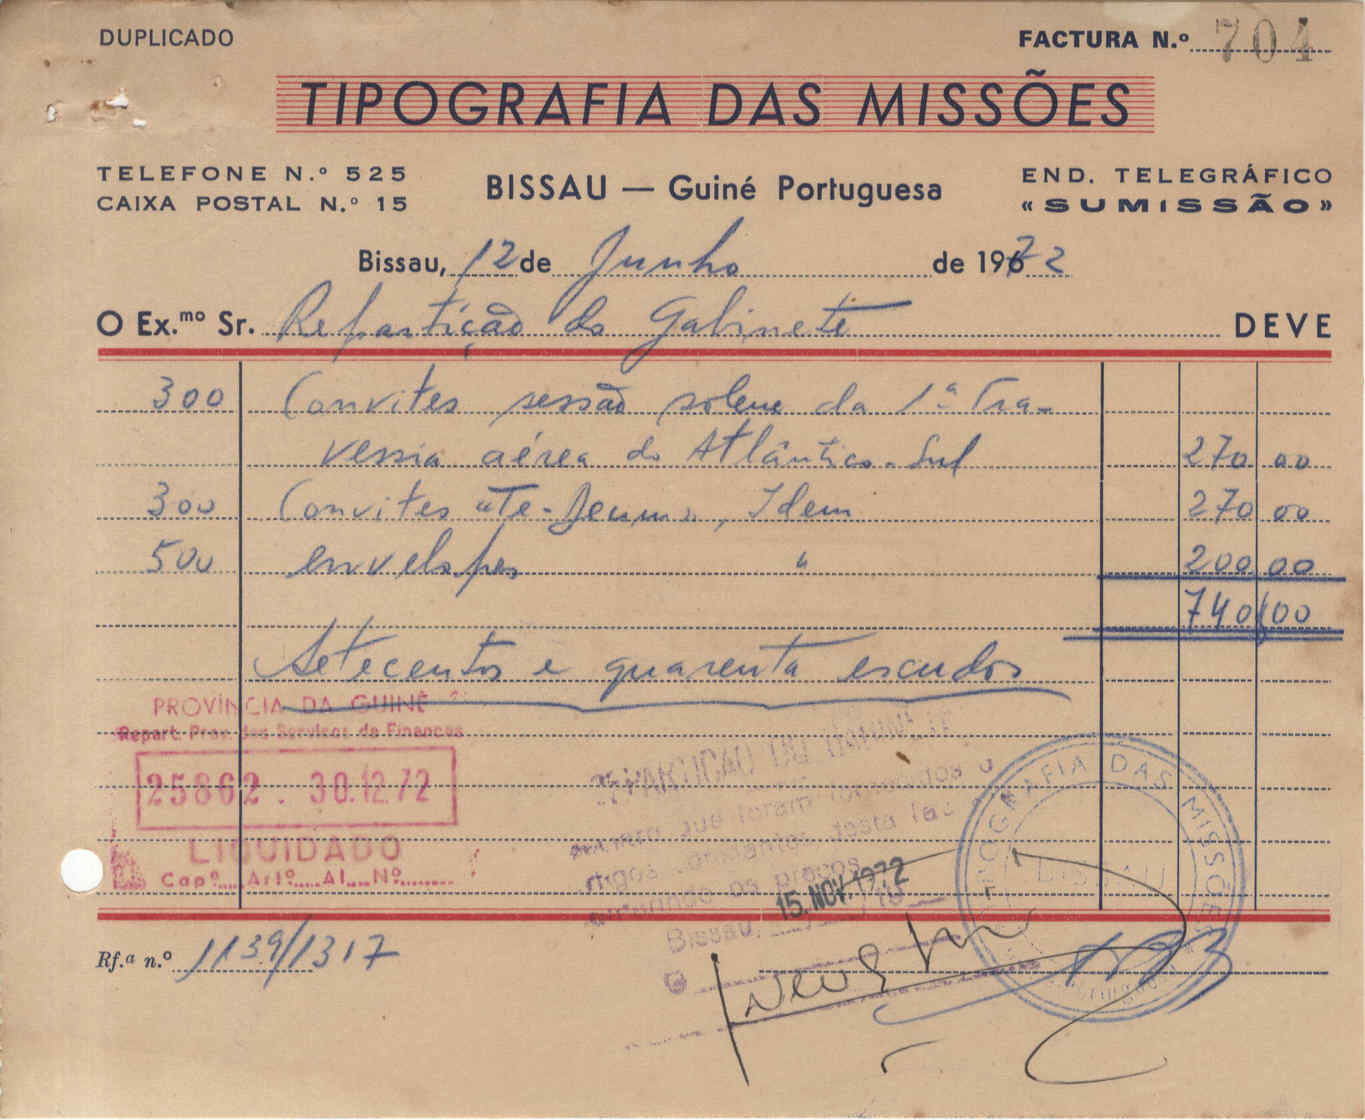 DUPLICADO
FACTURA N.º 704
TIPOGRAFIA DAS MISSÕES
TELEFONE N.º 525
CAIXA POSTAL N.º 15
BISSAU — Guiné Portuguesa
END. TELEGRÁFICO
«SUMISSÃO»
Bissau, 12 de Junho de 1972
O Ex.mo Sr. Repartição do Gabinete DEVE
300 Convites sessão solene da 1ª Tra-
vessia aérea do Atlântico-Sul 270 00
300 Convites Idem 270 00
500 envelopes " 200 00
740 00
Setecentos e quarenta escudos
PROVÍNCIA DA GUINÉ
Repart. Prov. dos Serviços de Finanças
25862 . 30.12.72
LIQUIDADO
Capº.... Artº.... Al.... Nº........
REPARTIÇÃO DO GABINETE
que foram fornecidos o
artigos constantes desta fac
os preços
15. NOV. 1972
Bissau, / /19
O
TIPOGRAFIA DAS MISSÕES
BISSAU
Rf.ª n.º 1139/1317